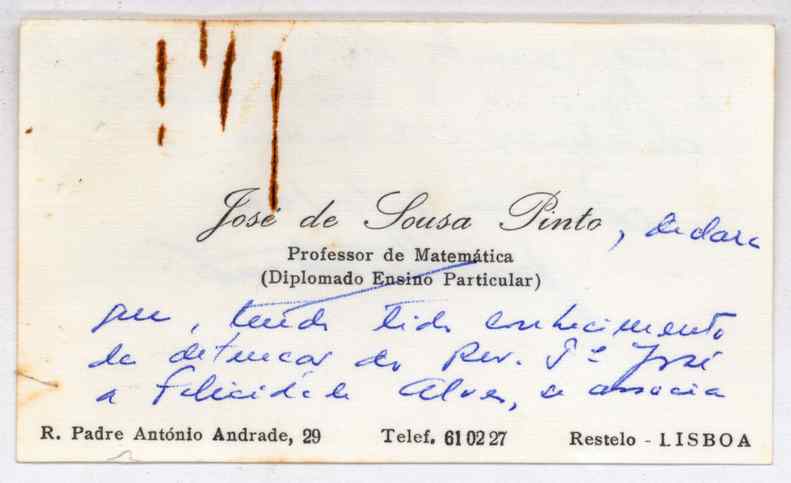 José de Sousa Pinto, declara
Professor de Matemática
(Diplomado Ensino Particular)
que, tendo tido conhecimento
da detenção do Rev. Pe José
da Felicidade Alves, se associa
R. Padre António Andrade, 29 Telef. 61 02 27 Restelo - LISBOA